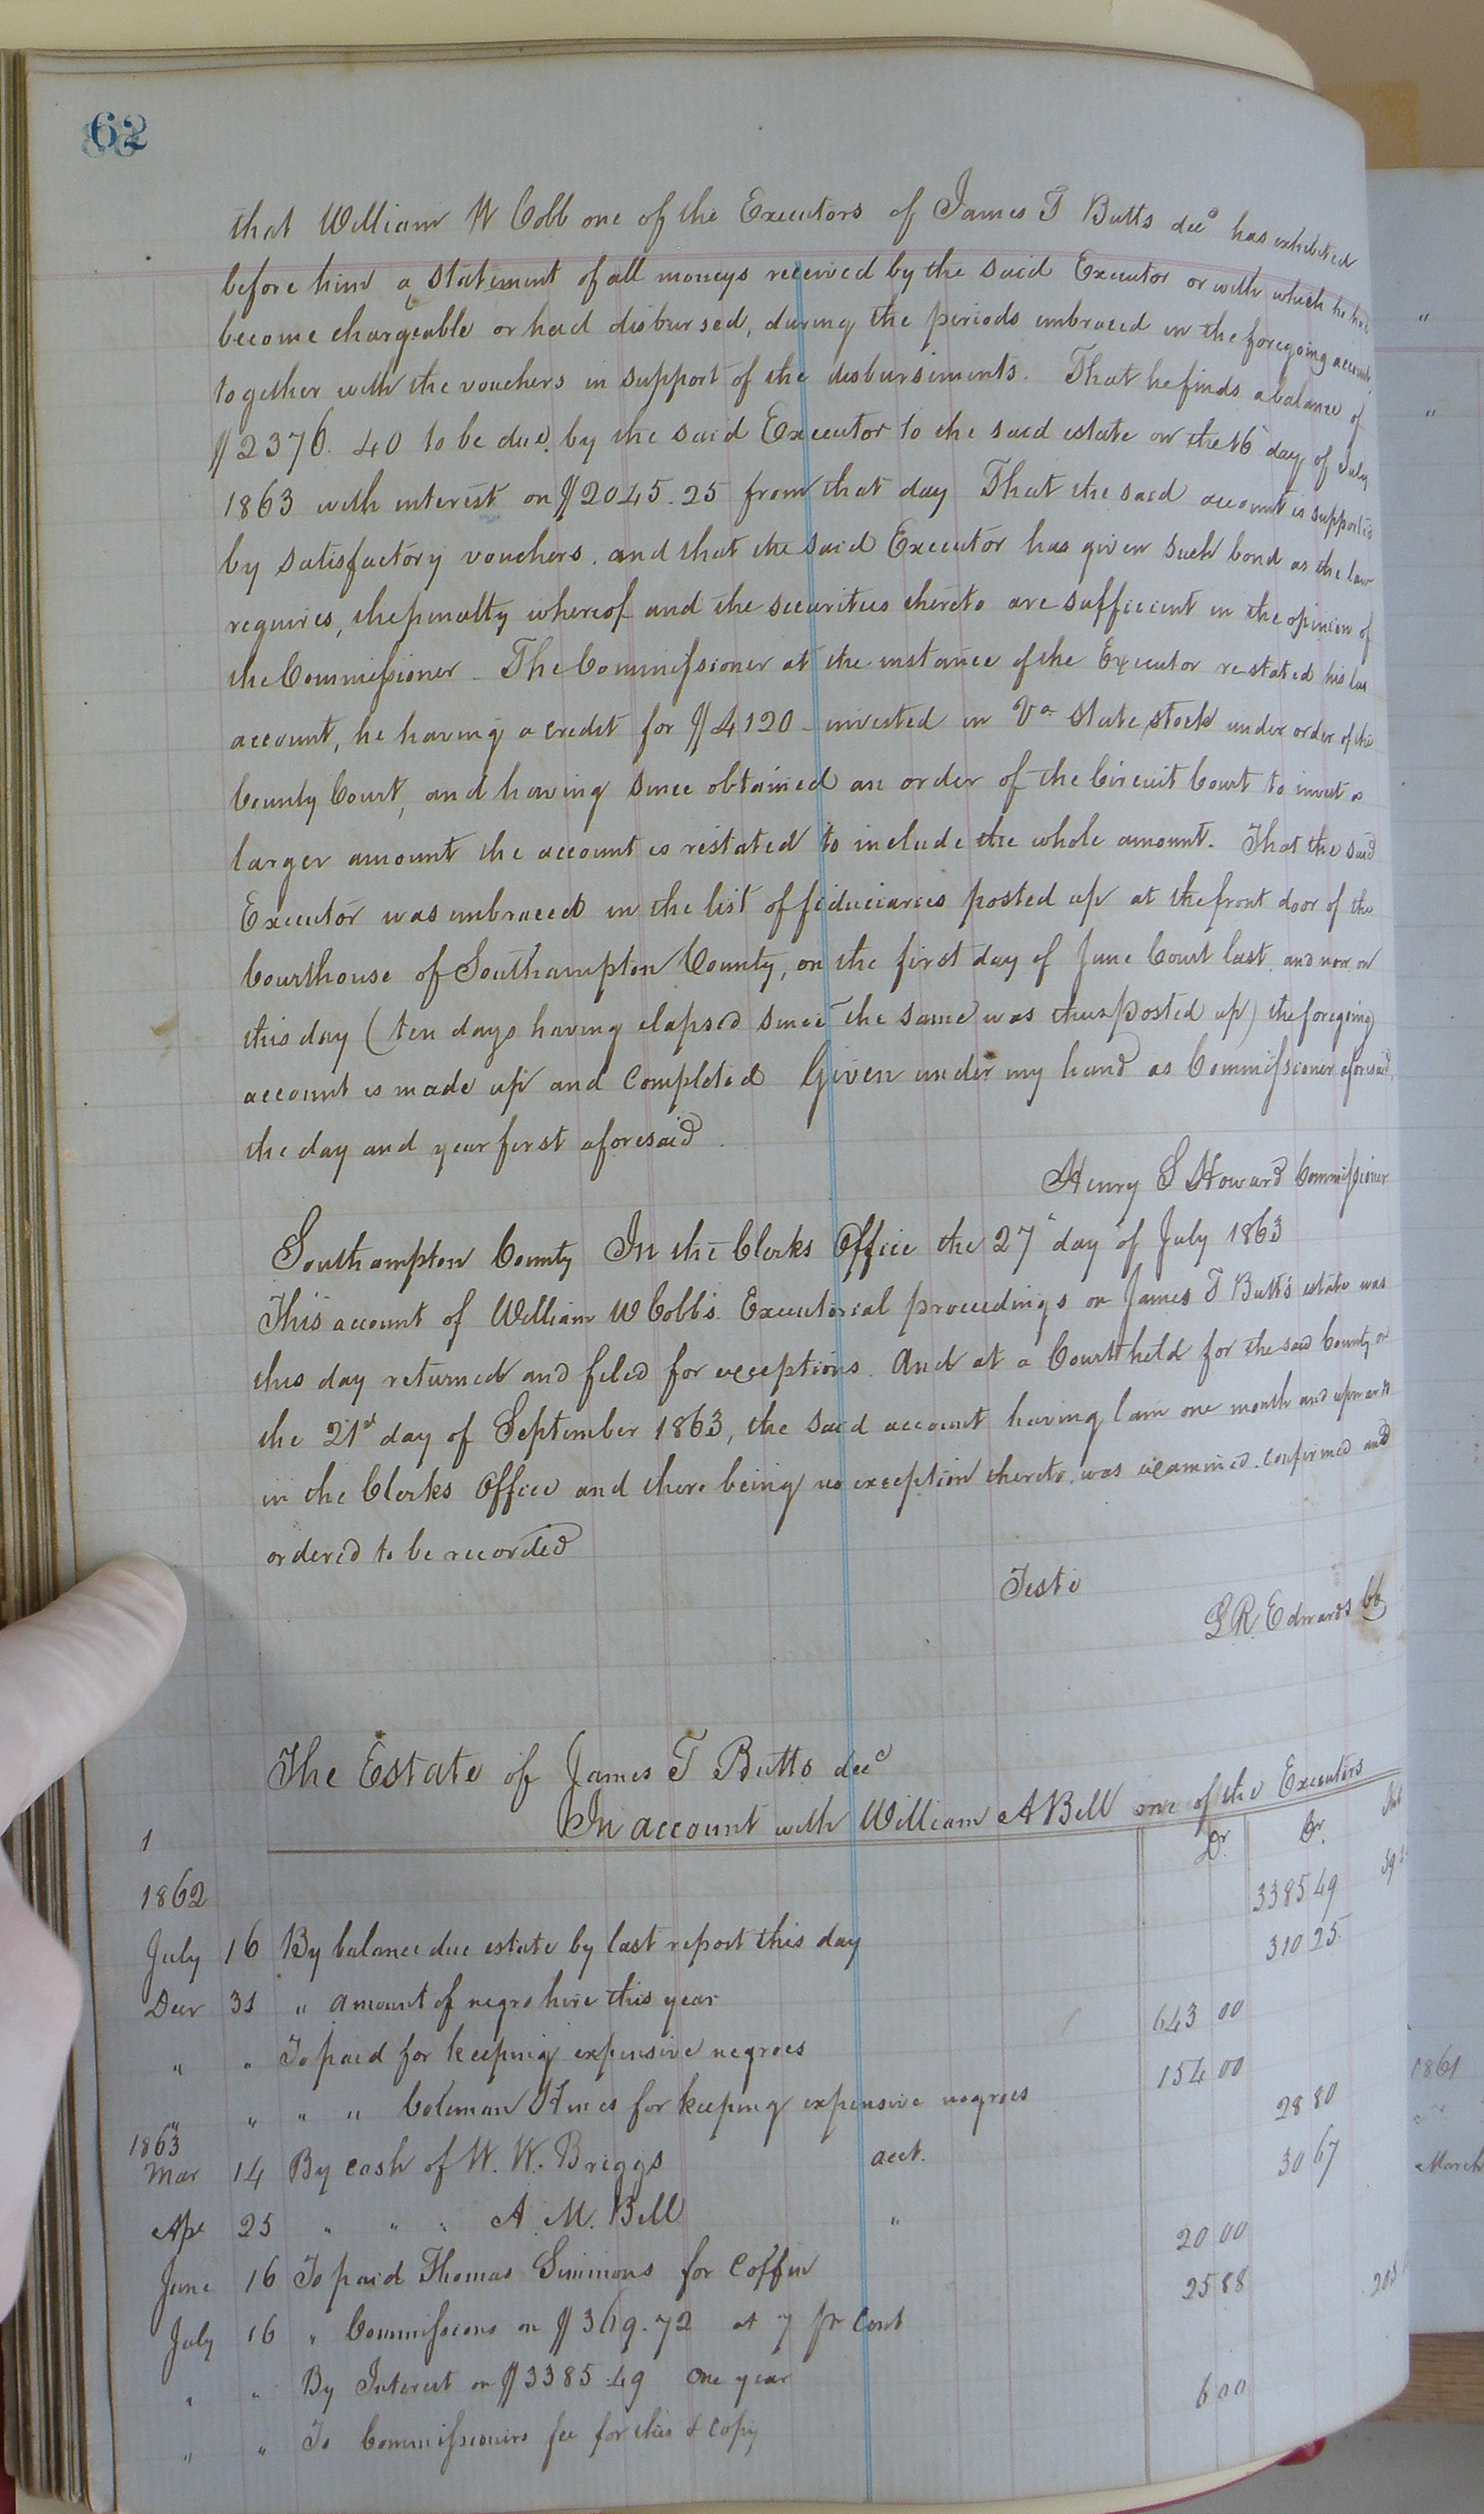 62
that William W Cobb one of the Executors of James T Butts decd has exhibited
before him a statement of all moneys received by the said Executor or with which he had
become chargeable or had disbursed, during the periods embraced in the foregoing account
together with the vouchers in support of the disbursements. That he finds a balance of
$2376.40 to be due by the said Executor to the said estate on the 16 day of July
1863 with interest on $2045.25 from that day That the said account is supported
by satisfactory vouchers. and that the said Executor has given such bond as the law
requires, the penalty whereof and the securities thereto are sufficient in the opinion of
the Commissioner. The Commissioner at the instance of the Executor restated his last
account, he having a credit for $4120 - invested in Va State stock under order of the
County Court, and having since obtained an order of the Circuit Court to invest a
larger amount the account is restated to include the whole amount. That the said
Executor was embraced in the list of fiduciaries posted up at the front door of the
Courthouse of Southampton County, on the first day of June Court last, and now on
this day (ten days having elapsed since the same was thus posted up) the foregoing
account is made up and completed Given under my hand as Commissioner aforesaid,
the day and year first aforesaid.
Henry S Howard Commissioner
Southampton County In the Clerks Office the 27" day of July 1863
This account of William W Cobb's Executorial proceedings on James T Butts estate was
this day returned and filed for exceptions. And at a Court held for the said County on
the 21st day of September 1863, the said account having lain one month and upwards
in the Clerks Office and there being no exception thereto, was examined. confirmed and
ordered to be recorded
Teste
L R. Edwards CC
The Estate of James T Butts decd
In account with William A Bell one of the Executors
1 Dr. Cr. Int
1862 3385 49
July 16 By balance due estate by last report this day 310 25
Decr 31 " amount of negro hire this year
" " To paid for keeping expensive negroes 643 00
" " " " Coleman Hines for keeping expensive negroes 154 00
1863
Mar 14 By cash of W. W. Briggs acct. 28 80
Apl 25 " " " A. M. Bell " 30 67
June 16 To paid Thomas Simmons for Coffin 20 00
July 16 " Commissions on $369.72 at 7 pr Cent 25 88
" " By Interest on $3385.49 one year 203
" " To Commissioners fee for this & copy 6 00
1861
March